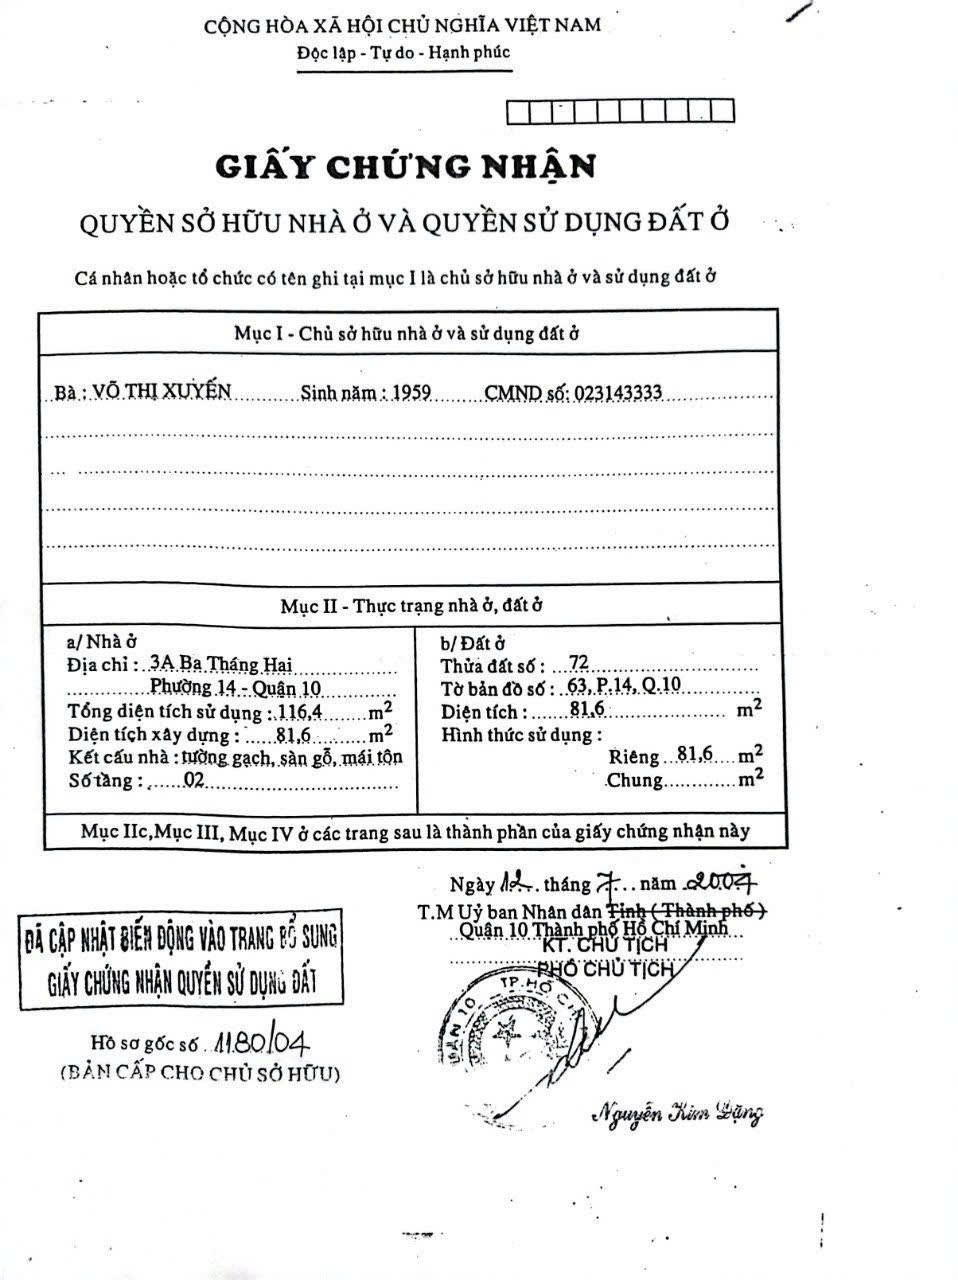 CỘNG HÒA XÃ HỘI CHỦ NGHĨA VIỆT NAM
Độc lập - Tự do - Hạnh phúc
GIẤY CHỨNG NHẬN
QUYỀN SỞ HỮU NHÀ Ở VÀ QUYỀN SỬ DỤNG ĐẤT Ở
Cá nhân hoặc tổ chức có tên ghi tại mục I là chủ sở hữu nhà ở và sử dụng đất ở
Mục I - Chủ sở hữu nhà ở và sử dụng đất ở
Bà : VÕ THỊ XUYẾN Sinh năm : 1959 CMND số: 023143333
Mục II - Thực trạng nhà ở, đất ở
a/ Nhà ở
Địa chỉ : 3A Ba Tháng Hai
Phường 14 - Quận 10
Tổng diện tích sử dụng : 116,4 m2
Diện tích xây dựng : 81,6 m2
Kết cấu nhà : tường gạch, sàn gỗ, mái tôn
Số tầng : 02
b/ Đất ở
Thửa đất số : 72
Tờ bản đồ số : 63, P.14, Q.10
Diện tích : 81,6 m2
Hình thức sử dụng :
Riêng 81,6 m2
Chung m2
Mục IIc, Mục III, Mục IV ở các trang sau là thành phần của giấy chứng nhận này
Ngày 12 tháng 7 năm 2004
T.M Uỷ ban Nhân dân Tỉnh ( Thành phố )
Quận 10 Thành phố Hồ Chí Minh
KT. CHỦ TỊCH
PHÓ CHỦ TỊCH
QUẬN 10 TP.HỒ CHÍ
Nguyễn Kim Đặng
ĐÃ CẬP NHẬT BIẾN ĐỘNG VÀO TRANG BỔ SUNG
GIẤY CHỨNG NHẬN QUYỀN SỬ DỤNG ĐẤT
Hồ sơ gốc số 1180/04
(BẢN CẤP CHO CHỦ SỞ HỮU)